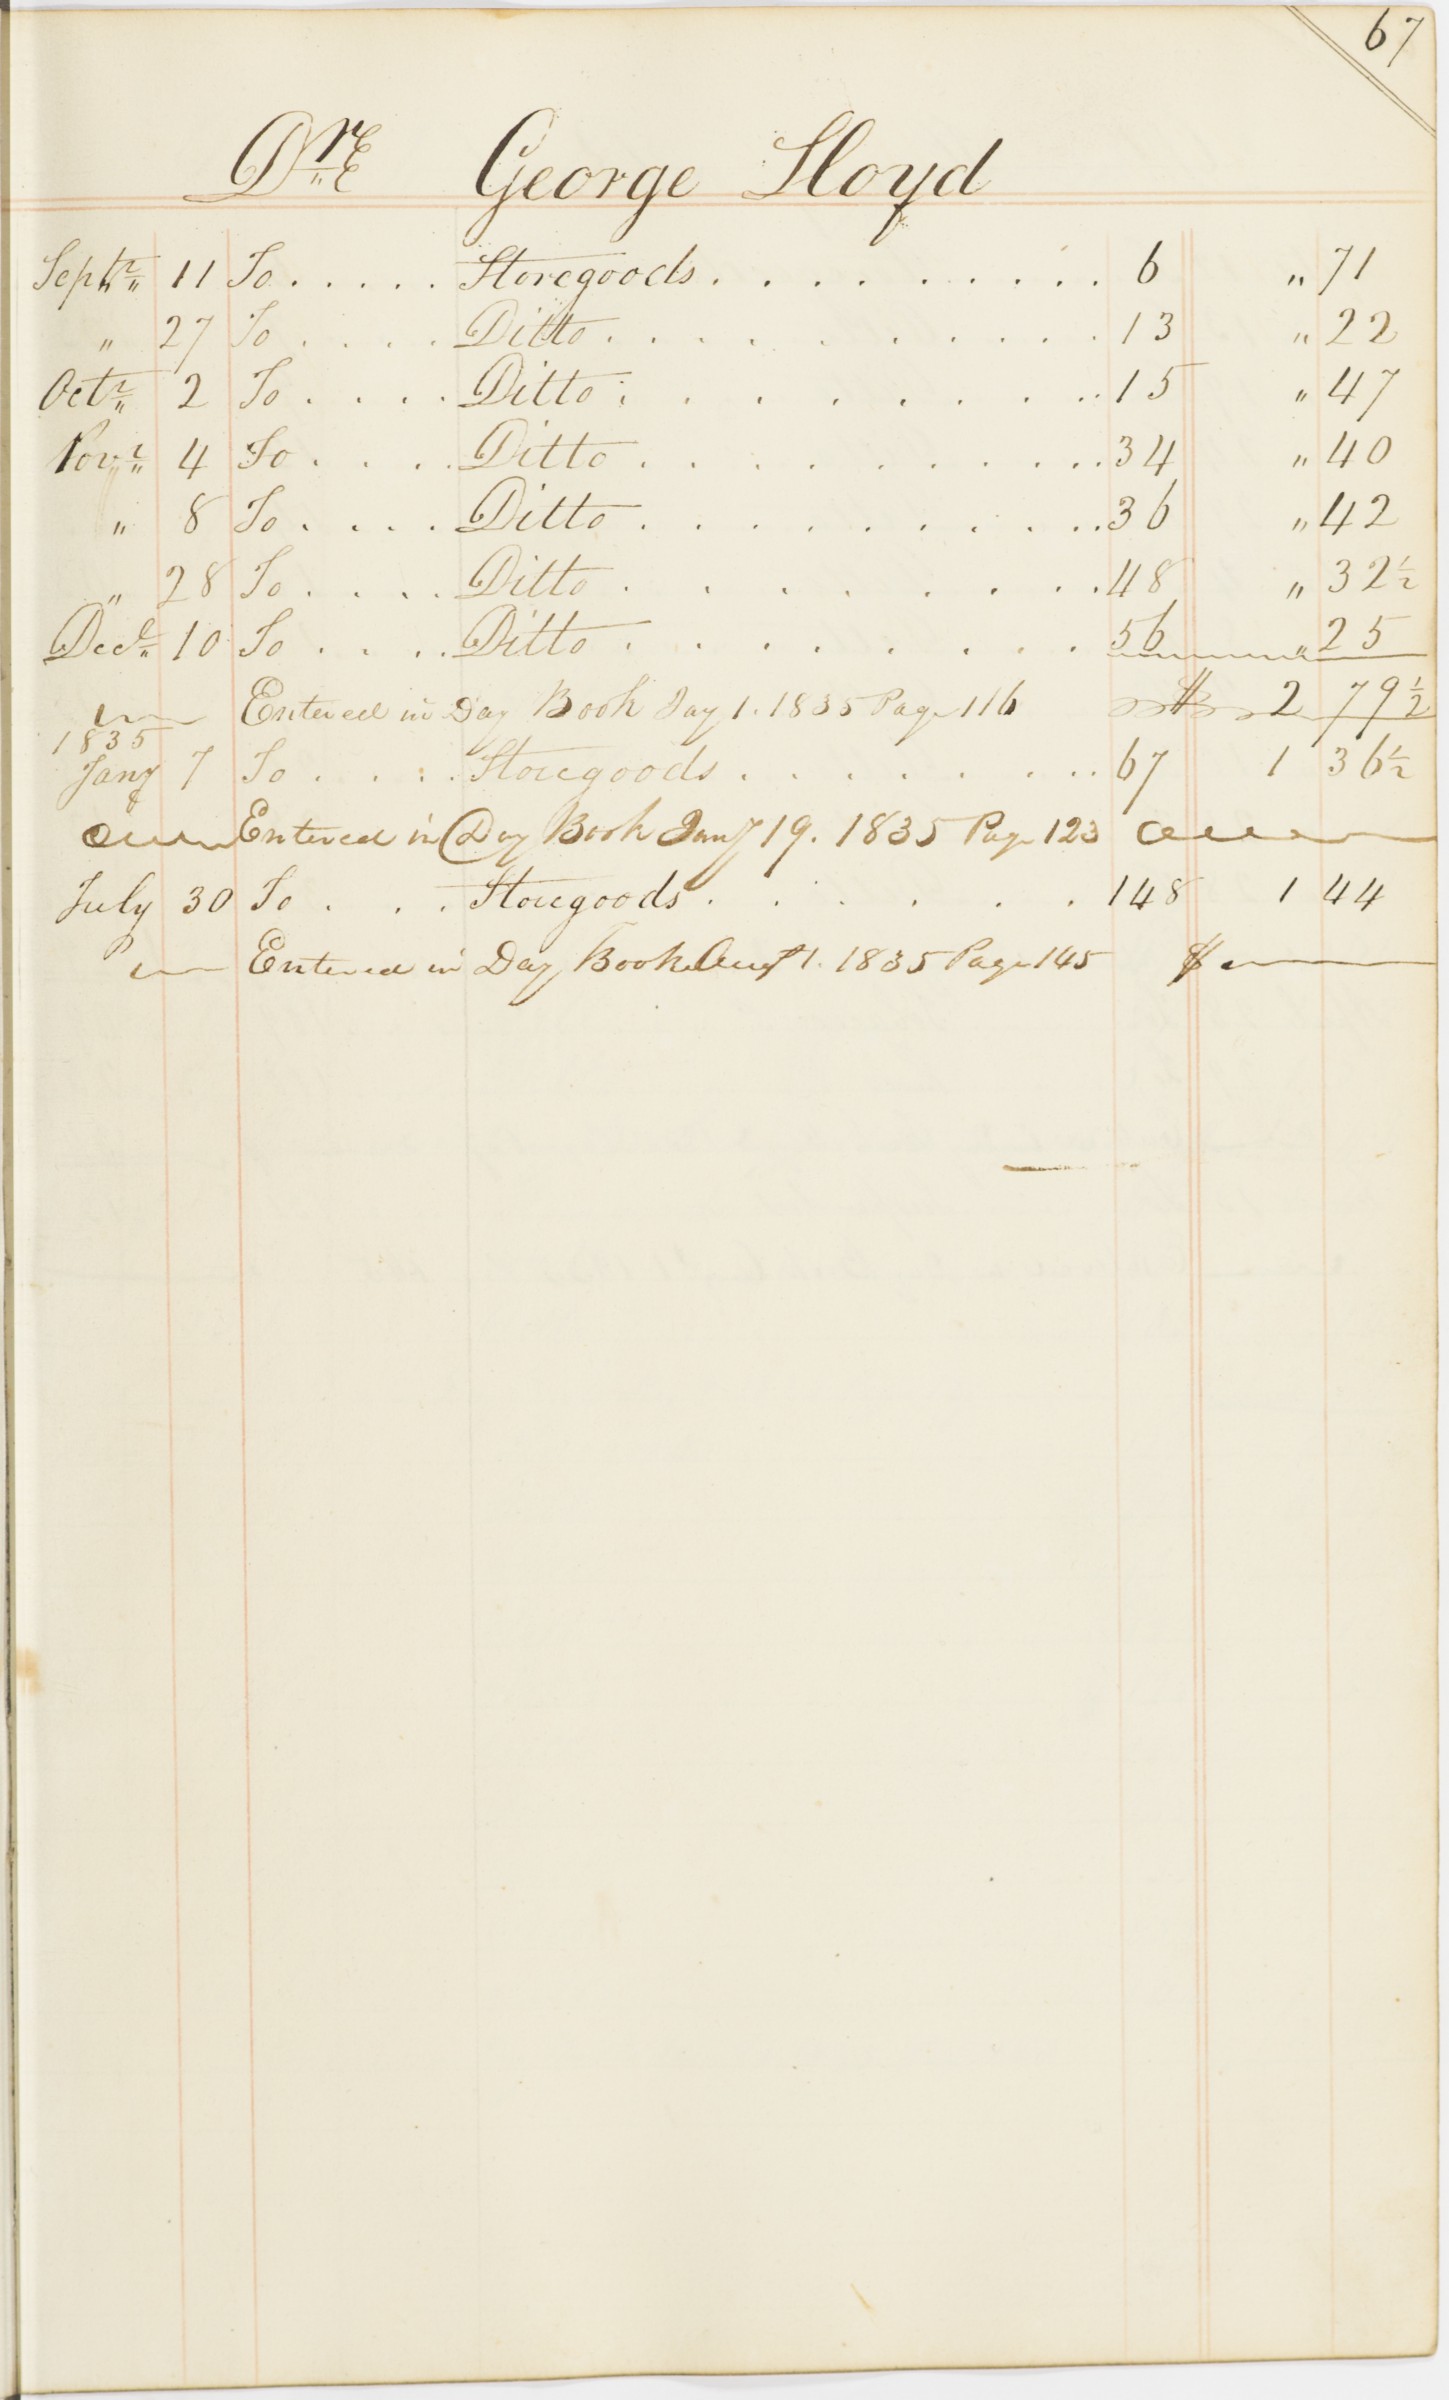 67
Dr. George Lloyd
Septr. 11 To . . . . . Storegoods . . . . . . . . . 6 " 71
" 27 To . . . . Ditto . . . . . . . . . . 13 " 22
Octr. 2 To . . . . Ditto . . . . . . . . . . 15 " 47
Novr. 4 To . . . . Ditto . . . . . . . . . . 34 " 40
" 8 To . . . . Ditto . . . . . . . . . . 36 " 42
" 28 To . . . . Ditto . . . . . . . . . . 48 " 32½
Decr. 10 To . . . . Ditto . . . . . . . . . 56 " 25
Entered in Day Book Jay 1. 1835 Page 116 $ 2 79½
1835
Jany 7 To . . . . Storegoods . . . . . . . . 67 1 36½
Entered in Day Book Jany 19. 1835 Page 123
July 30 To . . . Storegoods . . . . . . . 148 1 44
Entered in Day Book Augt 1. 1835 Page 145 $